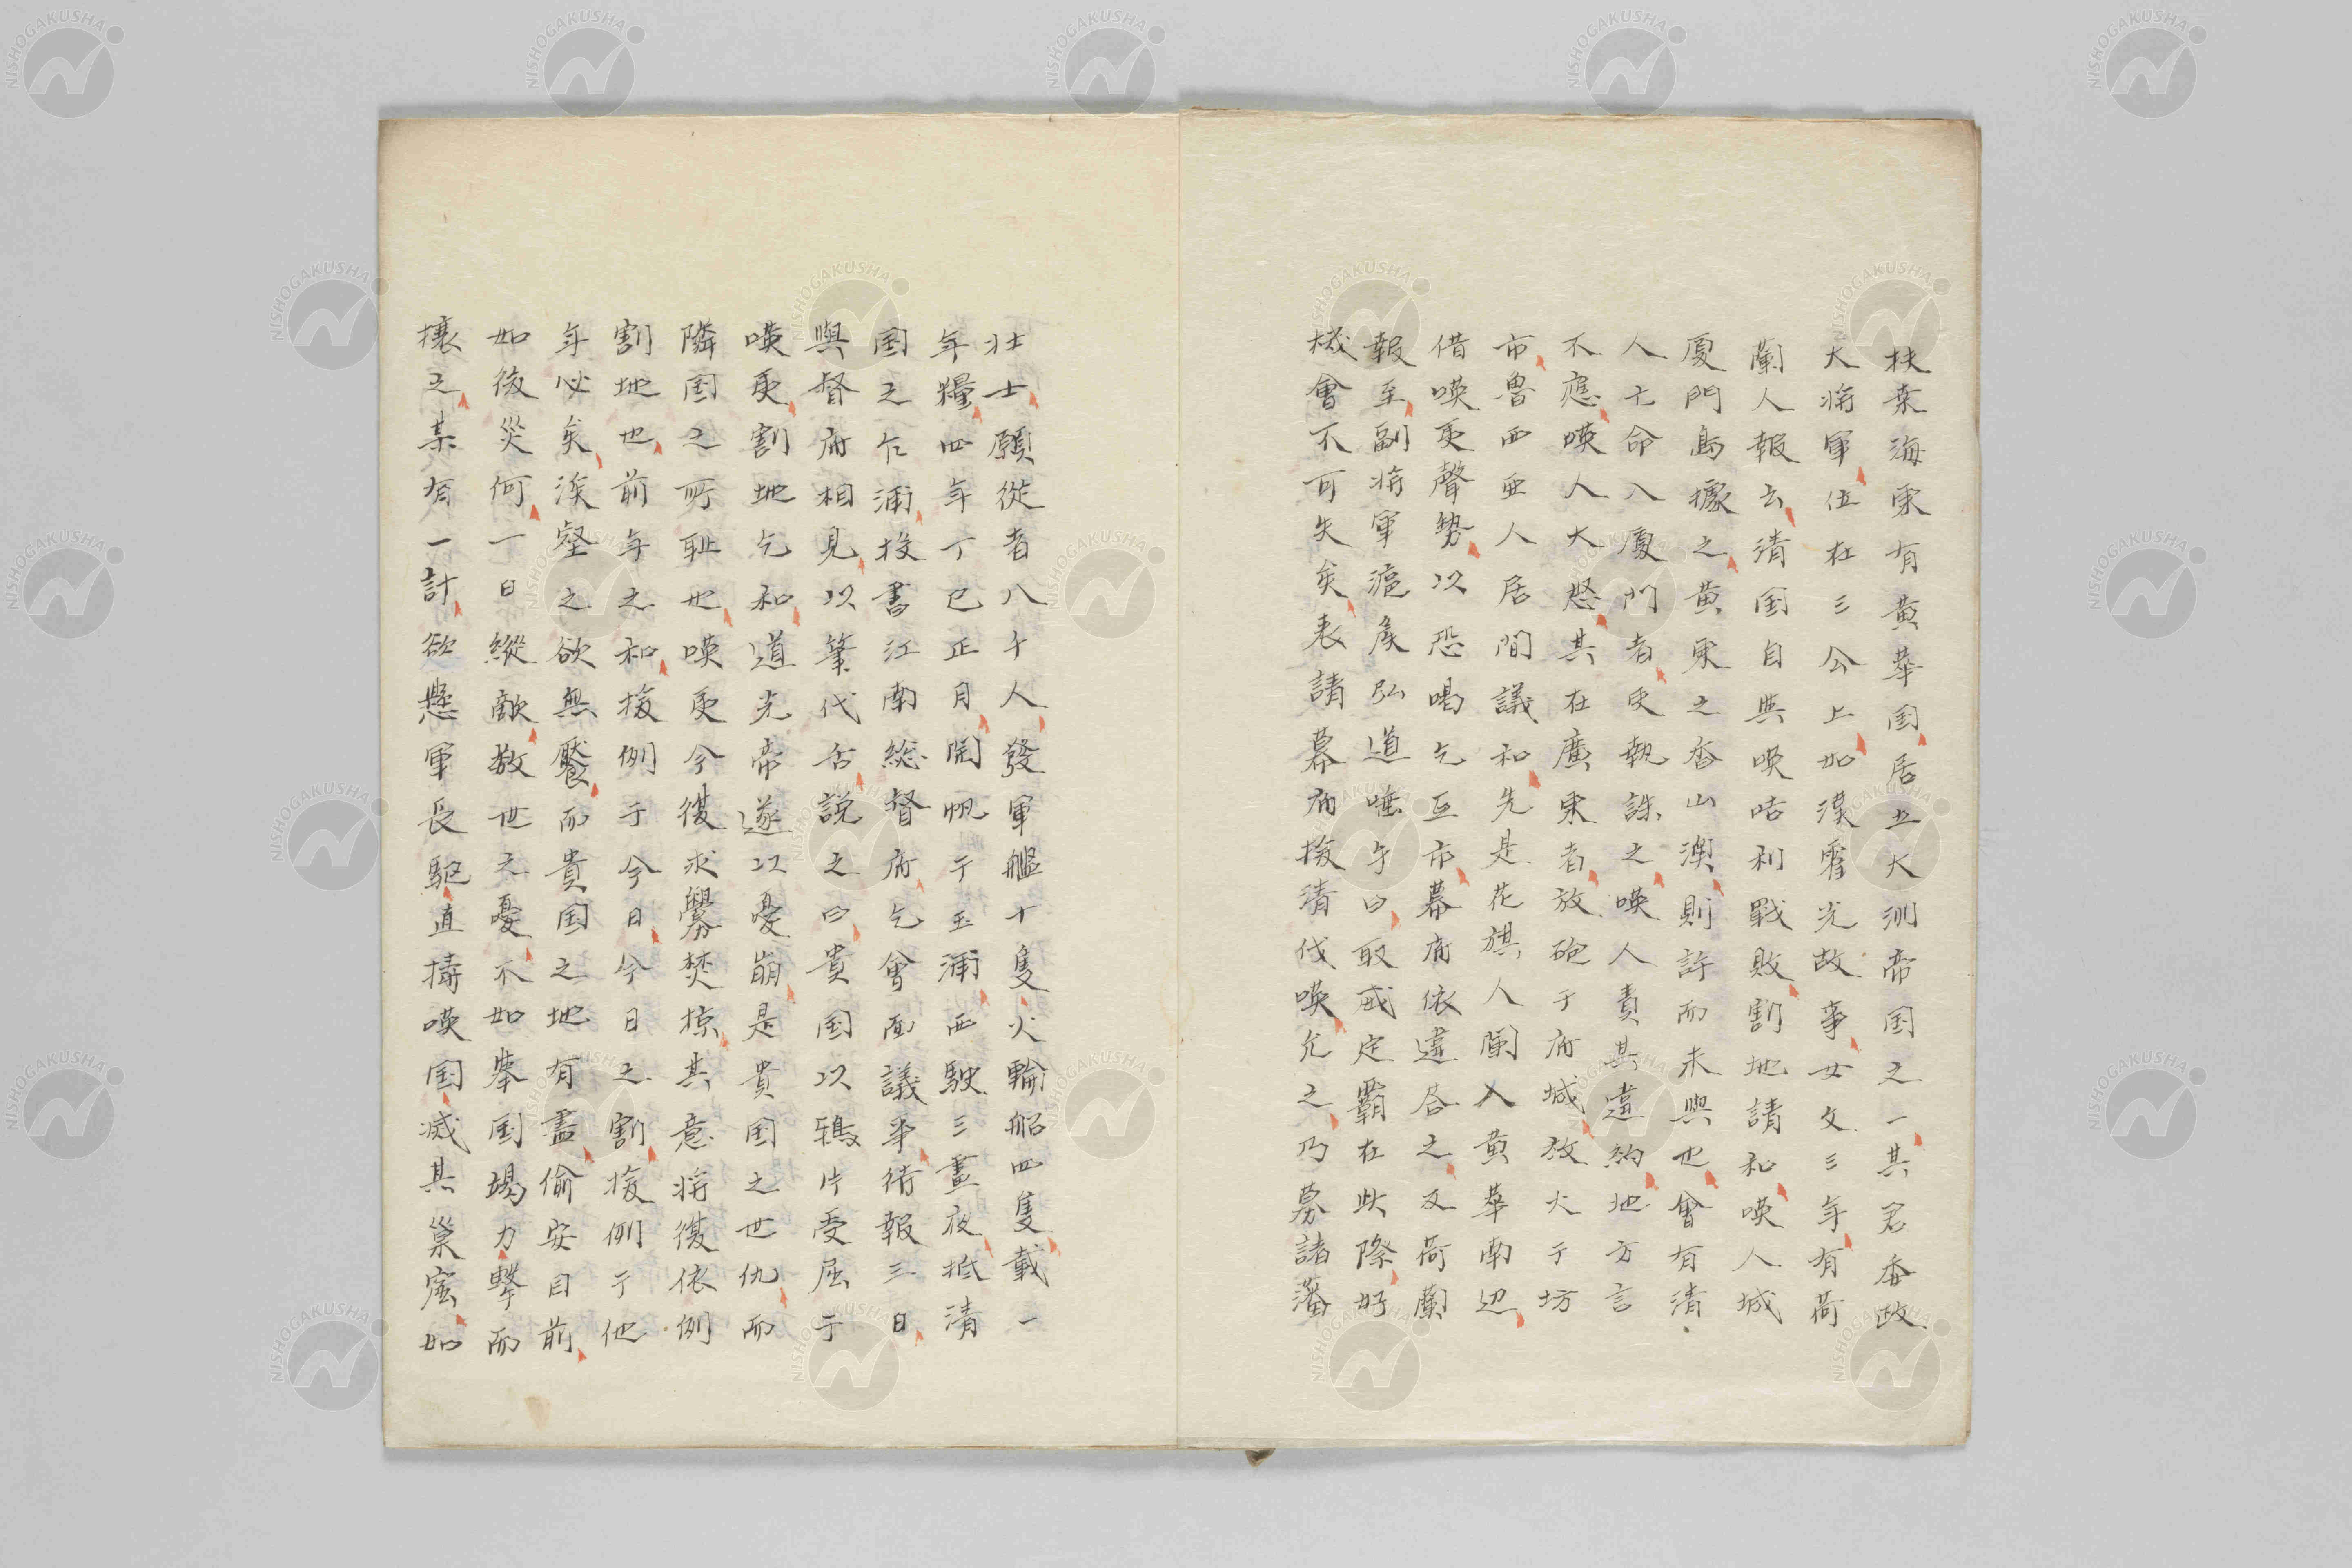 扶桒海東有黄華国居五大洲帝国之一其君委政
大将軍位在三公上如漢霍光故事女文三年有荷
蘭人報云清国自與㗸咭利戰敗割地請和㗸人城
厦門島據之黄東之香山澳則許而未與也會有清
人亡命入厦門者吏執誅之㗸人責其違約地方言
不應㗸人大怒其在廣東者放砲于府城放火于坊
市魯西亜人居間議和先是花旗人闌入黄華南辺
借㗸吏聲勢以恐喝乞互市幕府依違答之又荷蘭
報至副将軍滬侯弘道唾手曰取威定霸在此際好
機會不可失矣表請幕府援清伐㗸允之乃募諸藩
壮士願從者八千人發軍艦十隻火輪船四隻載一
年糧四年丁巳正月開帆于玉浦西駛三晝夜抵清
国之乍浦投書江南総督府乞會面議事待報三日
與督府相見以筆代舌説之曰貴国以鴉片受屈于
㗸吏割地乞和道光帝遂以憂崩是貴国之世仇而
隣国之所耻也㗸吏今復求釁焚掠其意将復依例
割地也前年之和援例于今日今日之割援例于他
年必矣渓壑之欲無饜而貴国之地有盡偷安目前
如後災何一日縱敵数世之憂不如挙国竭力撃而
攘之某有一計欲懸軍長駆直擣㗸国滅其巣窟如